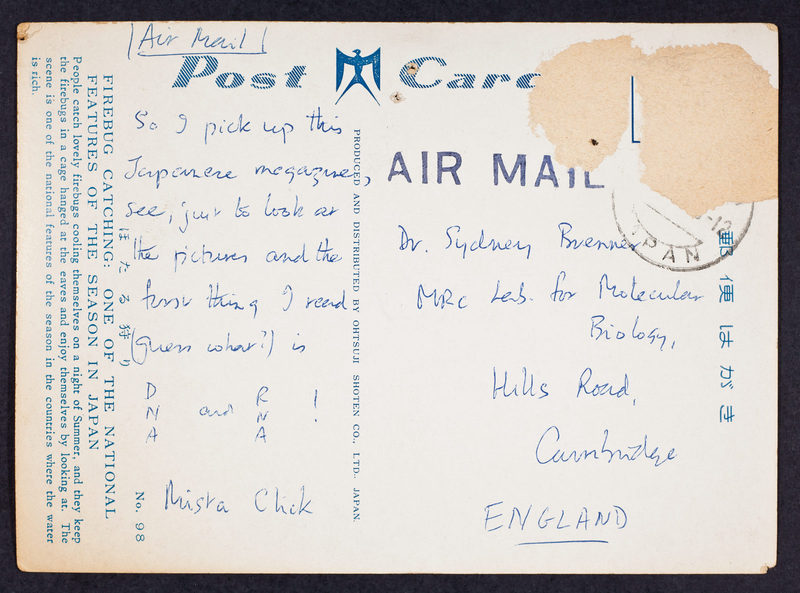 Air Mail
Post Card
So I pick up this
Japanese magazine,
see, just to look at
the pictures and the
first thing I read
(guess what?) is
DNA and RNA !
Mista Click
AIR MAIL
Dr. Sydney Brenner
MRC Lab. for Molecular
Biology,
Hills Road,
Cambridge
ENGLAND
PRODUCED AND DISTRIBUTED BY OHTSUJI SHOTEN CO., LTD., JAPAN.
郵便はがき
ほたる狩り
FIREBUG CATCHING: ONE OF THE NATIONAL
FEATURES OF THE SEASON IN JAPAN
People catch lovely firebugs cooling themselves on a night of Summer, and they keep
the firebugs in a cage hanged at the eaves and enjoy themselves by looking at. The
scene is one of the national features of the season in the countries where the water
is rich.
No. 98